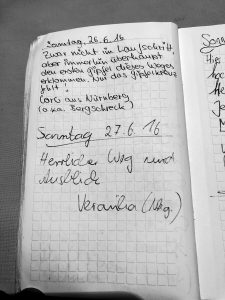 Samstag, 25.6.16
Zwar nicht in Laufschritt,
aber immerhin überhaupt
den ersten Gipfel dieses Weges
erklommen. Nur das Gipfelkreuz
fehlt!
aus Nürnberg
(a.ka. Bergschreck)
Sonntag 27.6.16
Herrlicher Weg und
Ausblick
Veronika (Nbg.)
Son
Hier